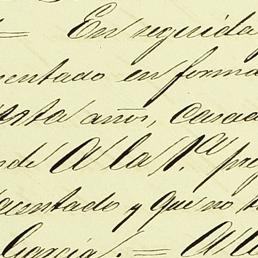 = En seguida
mentado en forma
años, Casad
de A la 1.ª pre
mentado y que no
García. = A la